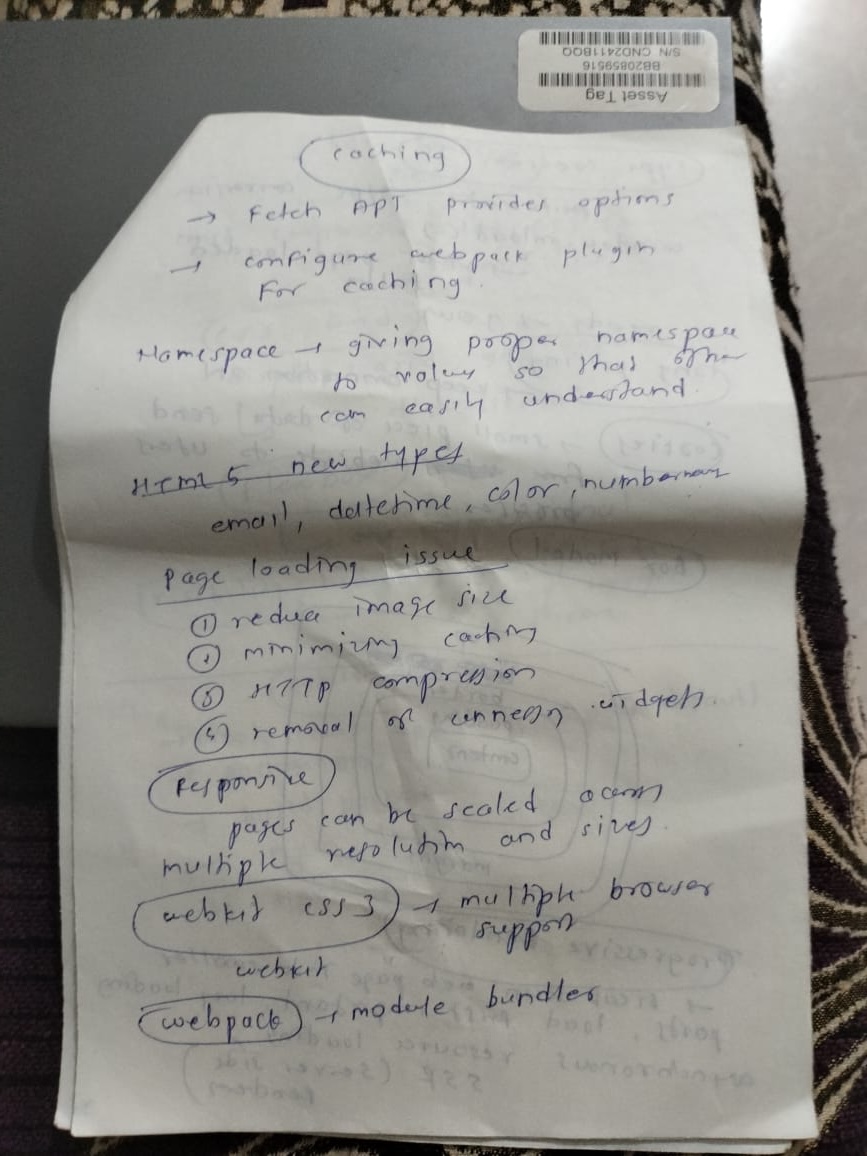 Asset Tag
BB208599516
S/N CND2411BQQ
caching
→ Fetch API provides options
→ configure webpack plugin
for caching.
Namespace → giving proper namespace
to values so that other
can easily understand.
HTML 5 new types
email, datetime, color, number
page loading issue
① reduce image size
② minimizing caching
③ HTTP compression
④ removal of widgets
Responsive
pages can be scaled across
multiple resolution and sizes.
webkit css3 → multiple browser
support
webkit
webpack → module bundler